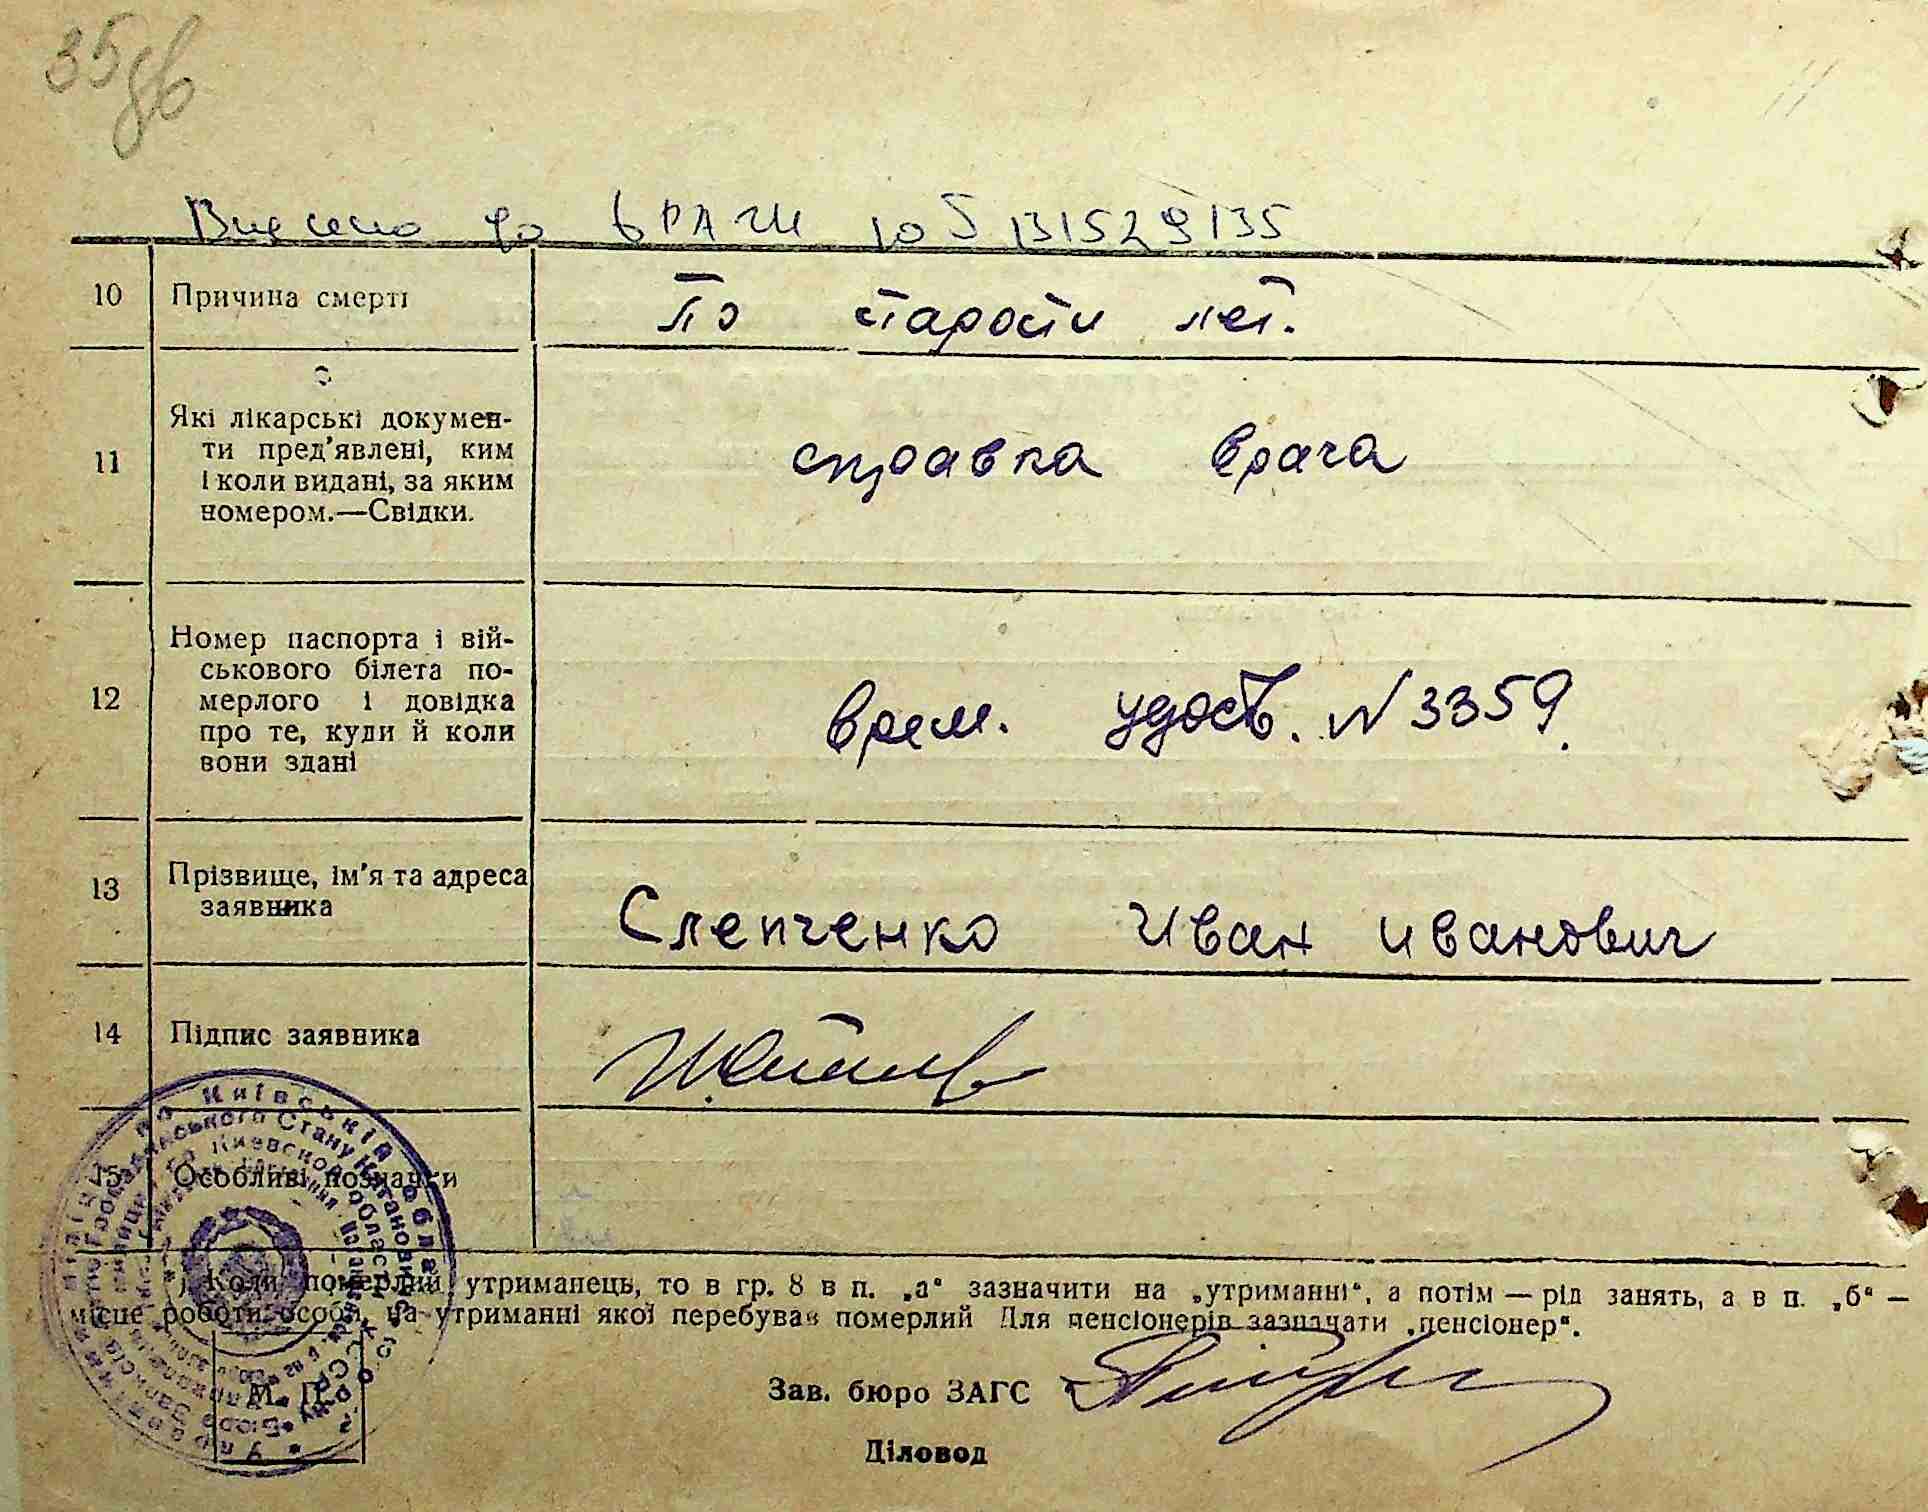 35 зв
Внесено до ДРАЦС 105131529135
10 Причина смерті По старости лет.
11 Які лікарські докумен-
ти пред'явлені, ким
і коли видані, за яким
номером.—Свідки.
справка врача
12 Номер паспорта і вій-
ськового білета по-
мерлого і довідка
про те, куди й коли
вони здані
врем. удост. N 3359.
13 Прізвище, ім'я та адреса
заявника
Слепченко Иван Иванович
14 Підпис заявника
15 Особливі позначки
) Коли померлий утриманець, то в гр. 8 в п. „а“ зазначити на „утриманні“, а потім — рід занять, а в п. „б“ —
місце роботи особи, на утриманні якої перебував померлий Для пенсіонерів зазначати „пенсіонер“.
М. П.
Зав. бюро ЗАГС
Діловод